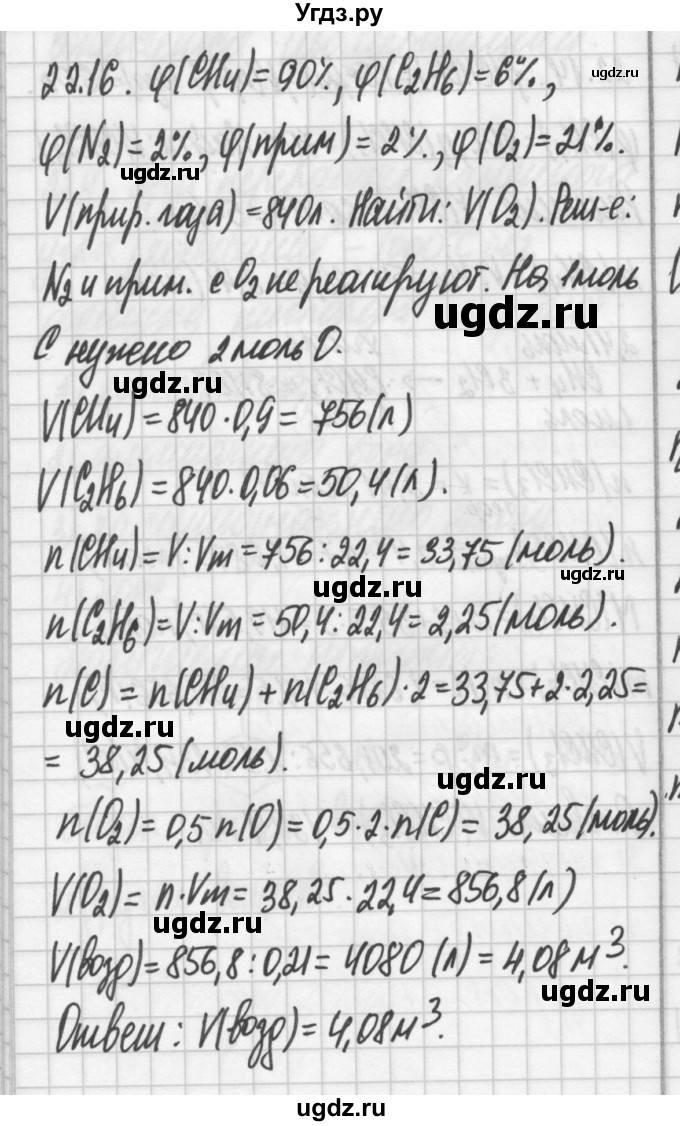 Угдз.ру
22.16. φ(CH₄)=90%, φ(C₂H₆)=6%,
ugdz.ru
φ(N₂)=2%, φ(прим)=2%, φ(O₂)=21%.
ugdz.ru
V(прир. газа)=840л. Найти: V(O₂). Реш-е:
N₂ и прим. с O₂ не реагируют. На 1 моль
ugdz.ru
C нужно 2 моль O.
ugdz.ru
V(CH₄)=840·0,9=756(л)
V(C₂H₆)=840·0,06=50,4(л).
n(CH₄)=V:Vm=756:22,4=33,75(моль).
ugdz.ru
ugdz.ru
n(C₂H₆)=V:Vm=50,4:22,4=2,25(моль).
n(C)=n(CH₄)+n(C₂H₆)·2=33,75+2·2,25=
ugdz.ru
=38,25(моль).
ugdz.ru
n(O₂)=0,5n(O)=0,5·2·n(C)=38,25(моль).
V(O₂)=n·Vm=38,25·22,4=856,8(л)
ugdz.ru
V(возд)=856,8:0,21=4080(л)=4,08м³.
ugdz.ru
Ответ: V(возд)=4,08м³.
ugdz.ru